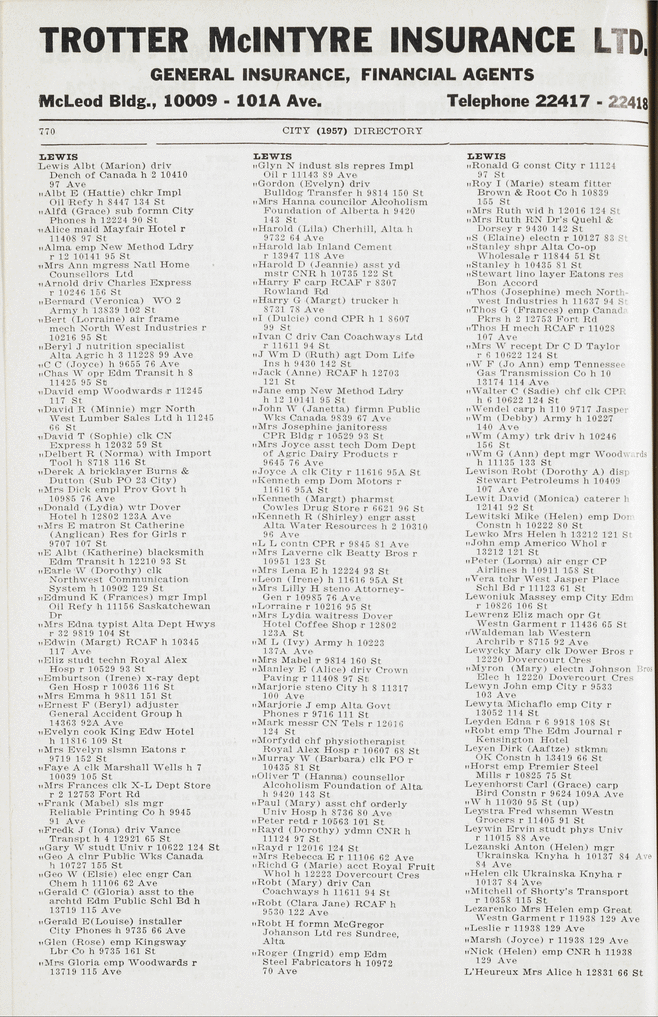 TROTTER McINTYRE INSURANCE LTD.
GENERAL INSURANCE, FINANCIAL AGENTS
McLeod Bldg., 10009 - 101A Ave. Telephone 22417 - 22418
770 CITY (1957) DIRECTORY
LEWIS
Lewis Albt (Marion) driv
Dench of Canada h 2 10410
97 Ave
„Albt E (Hattie) chkr Impl
Oil Refy h 8447 134 St
„Alfd (Grace) sub formn City
Phones h 12224 90 St
„Alice maid Mayfair Hotel r
11408 97 St
„Alma emp New Method Ldry
r 12 10141 95 St
„Mrs Ann mgress Natl Home
Counsellors Ltd
„Arnold driv Charles Express
r 10246 156 St
„Bernard (Veronica) WO 2
Army h 13839 102 St
„Bert (Lorraine) air frame
mech North West Industries r
10216 95 St
„Beryl J nutrition specialist
Alta Agric h 3 11228 99 Ave
„C C (Joyce) h 9655 76 Ave
„Chas W opr Edm Transit h 8
11425 95 St
„David emp Woodwards r 11245
117 St
„David R (Minnie) mgr North
West Lumber Sales Ltd h 11245
66 St
„David T (Sophie) clk CN
Express h 12032 59 St
„Delbert R (Norma) with Import
Tool h 8718 116 St
„Derek A bricklayer Burns &
Dutton (Sub PO 23 City)
„Mrs Dick empl Prov Govt h
10985 76 Ave
„Donald (Lydia) wtr Dover
Hotel h 12802 123A Ave
„Mrs E matron St Catherine
(Anglican) Res for Girls r
9707 107 St
„E Albt (Katherine) blacksmith
Edm Transit h 12210 93 St
„Earle W (Dorothy) clk
Northwest Communication
System h 10902 129 St
„Edmund K (Frances) mgr Impl
Oil Refy h 11156 Saskatchewan
Dr
„Mrs Edna typist Alta Dept Hwys
r 32 9819 104 St
„Edwin (Margt) RCAF h 10345
117 Ave
„Eliz studt techn Royal Alex
Hosp r 10529 93 St
„Emburtson (Irene) x-ray dept
Gen Hosp r 10036 116 St
„Mrs Emma h 9811 151 St
„Ernest F (Beryl) adjuster
General Accident Group h
14363 92A Ave
„Evelyn cook King Edw Hotel
h 11816 109 St
„Mrs Evelyn slsmn Eatons r
9719 152 St
„Faye A clk Marshall Wells h 7
10039 105 St
„Mrs Frances clk X-L Dept Store
r 2 12753 Fort Rd
„Frank (Mabel) sls mgr
Reliable Printing Co h 9945
91 Ave
„Fredk J (Iona) driv Vance
Transpt h 4 12921 65 St
„Gary W studt Univ r 10622 124 St
„Geo A clnr Public Wks Canada
h 10727 155 St
„Geo W (Elsie) elec engr Can
Chem h 11106 62 Ave
„Gerald C (Gloria) asst to the
archtd Edm Public Schl Bd h
13719 115 Ave
„Gerald E(Louise) installer
City Phones h 9735 66 Ave
„Glen (Rose) emp Kingsway
Lbr Co h 9735 161 St
„Mrs Gloria emp Woodwards r
13719 115 Ave
LEWIS
„Glyn N indust sls repres Impl
Oil r 11143 89 Ave
„Gordon (Evelyn) driv
Bulldog Transfer h 9814 150 St
„Mrs Hanna councilor Alcoholism
Foundation of Alberta h 9420
143 St
„Harold (Lila) Cherhill, Alta h
9732 64 Ave
„Harold lab Inland Cement
r 13947 118 Ave
„Harold D (Jeannie) asst yd
mstr CNR h 10735 122 St
„Harry F carp RCAF r 8307
Rowland Rd
„Harry G (Margt) trucker h
8731 78 Ave
„I (Dulcie) cond CPR h 1 8607
99 St
„Ivan C driv Can Coachways Ltd
r 11611 94 St
„J Wm D (Ruth) agt Dom Life
Ins h 9430 142 St
„Jack (Anne) RCAF h 12703
121 St
„Jane emp New Method Ldry
h 12 10141 95 St
„John W (Janetta) firmn Public
Wks Canada 9839 67 Ave
„Mrs Josephine janitoress
CPR Bldg r 10529 93 St
„Mrs Joyce asst tech Dom Dept
of Agric Dairy Products r
9645 76 Ave
„Joyce A clk City r 11616 95A St
„Kenneth emp Dom Motors r
11616 95A St
„Kenneth (Margt) pharmst
Cowles Drug Store r 6621 96 St
„Kenneth R (Shirley) engr asst
Alta Water Resources h 2 10310
96 Ave
„L L contn CPR r 9845 81 Ave
„Mrs Laverne clk Beatty Bros r
10951 123 St
„Mrs Lena E h 12224 93 St
„Leon (Irene) h 11616 95A St
„Mrs Lilly H steno Attorney-
Gen r 10985 76 Ave
„Lorraine r 10216 95 St
„Mrs Lydia waitress Dover
Hotel Coffee Shop r 12802
123A St
„M L (Ivy) Army h 10223
137A Ave
„Mrs Mabel r 9814 160 St
„Manley E (Alice) driv Crown
Paving r 11408 97 St
„Marjorie steno City h 8 11317
100 Ave
„Marjorie J emp Alta Govt
Phones r 9716 111 St
„Mark messr CN Tels r 12016
124 St
„Morfydd chf physiotherapist
Royal Alex Hosp r 10607 68 St
„Murray W (Barbara) clk PO r
10435 81 St
„Oliver T (Hanna) counsellor
Alcoholism Foundation of Alta
h 9420 143 St
„Paul (Mary) asst chf orderly
Univ Hosp h 8736 80 Ave
„Peter retd r 10563 101 St
„Rayd (Dorothy) ydmn CNR h
11124 97 St
„Rayd r 12016 124 St
„Mrs Rebecca E r 11106 62 Ave
„Richd G (Marie) acct Royal Fruit
Whol h 12223 Dovercourt Cres
„Robt (Mary) driv Can
Coachways h 11611 94 St
„Robt (Clara Jane) RCAF h
9530 122 Ave
„Robt H formn McGregor
Johanson Ltd res Sundree,
Alta
„Roger (Ingrid) emp Edm
Steel Fabricators h 10972
70 Ave
LEWIS
„Ronald G const City r 11124
97 St
„Roy I (Marie) steam fitter
Brown & Root Co h 10839
155 St
„Mrs Ruth wid h 12016 124 St
„Mrs Ruth RN Dr's Quehl &
Dorsey r 9430 142 St
„S (Elaine) electn r 10127 83 St
„Stanley shpr Alta Co-op
Wholesale r 11844 51 St
„Stanley h 10435 81 St
„Stewart lino layer Eatons res
Bon Accord
„Thos (Josephine) mech North-
west Industries h 11637 94 St
„Thos G (Frances) emp Canada
Pkrs h 2 12753 Fort Rd
„Thos H mech RCAF r 11028
107 Ave
„Mrs W recept Dr C D Taylor
r 6 10622 124 St
„W F (Jo Ann) emp Tennessee
Gas Transmission Co h 10
13174 114 Ave
„Walter C (Sadie) chf clk CPR
h 6 10622 124 St
„Wendel carp h 110 9717 Jasper
„Wm (Debby) Army h 10227
140 Ave
„Wm (Amy) trk driv h 10246
156 St
„Wm G (Ann) dept mgr Woodwards
h 11135 133 St
Lewison Robt (Dorothy A) disp
Stewart Petroleums h 10409
107 Ave
Lewit David (Monica) caterer h
12141 92 St
Lewitski Mike (Helen) emp Dom
Constn h 10222 80 St
Lewko Mrs Helen h 13212 121 St
„John emp Americo Whol r
13212 121 St
„Peter (Lorna) air engr CP
Airlines h 10911 158 St
„Vera tchr West Jasper Place
Schl Bd r 11123 61 St
Lewoniuk Massey emp City Edm
r 10826 106 St
Lewrenz Eliz mach opr Gt
Westn Garment r 11436 65 St
„Waldeman lab Western
Archrib r 8715 92 Ave
Lewycky Mary clk Dower Bros r
12220 Dovercourt Cres
„Myron (Mary) electn Johnson Bros
Elec h 12220 Dovercourt Cres
Lewyn John emp City r 9533
103 Ave
Lewyta Michaflo emp City r
13052 114 St
Leyden Edna r 6 9918 108 St
„Robt emp The Edm Journal r
Kensington Hotel
Leyen Dirk (Aaftze) stkmn
OK Constn h 13419 66 St
„Horst emp Premier Steel
Mills r 10825 75 St
Leyenhorst Carl (Grace) carp
Bird Constn r 9624 109A Ave
„W h 11030 95 St (up)
Leystra Fred whsemn Westn
Grocers r 11405 91 St
Leywin Ervin studt phys Univ
r 11015 88 Ave
Lezanski Anton (Helen) mgr
Ukrainska Knyha h 10137 84 Ave
84 Ave
„Helen clk Ukrainska Knyha r
10137 84 Ave
„Mitchell of Shorty's Transport
r 10358 115 St
Lezarenko Mrs Helen emp Great
Westn Garment r 11938 129 Ave
„Leslie r 11938 129 Ave
„Marsh (Joyce) r 11938 129 Ave
„Nick (Helen) emp CNR h 11938
129 Ave
L'Heureux Mrs Alice h 12831 66 St